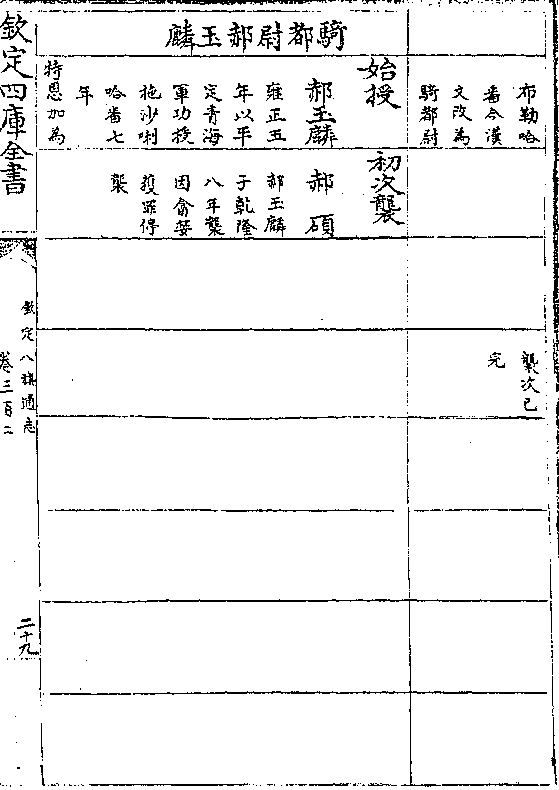 布勒哈
番今漢
文改為
騎都尉
襲次已
完
騎都尉郝玉麟
始授
郝玉麟
雍正五
年以平
定青海
軍功授
拖沙喇
哈番七
年
特恩加為
初次襲
郝碩
郝玉麟
子乾隆
八年襲
因貪婪
獲罪停
襲
欽定四庫全書
欽定八旗通志
卷三百二
二十九